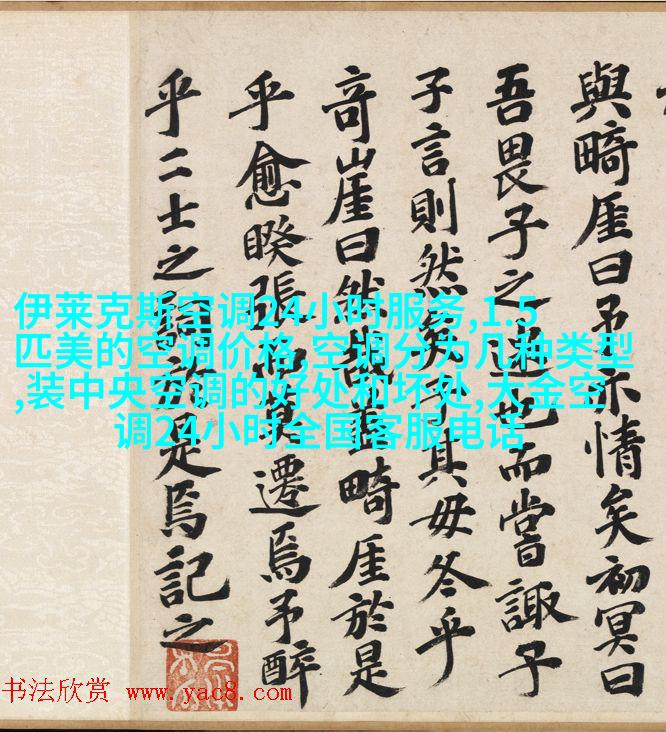 與畸厓曰予亦情矣初冥曰
吾畏子之迷也而嘗諏子
子言則然矣子其毋冬乎
奇崖曰然哉畸厓於是
乎愈睽張莫遷焉予醉
乎二士之是焉記之
伊莱克斯空调24小时服务,1.5
匹美的空调价格,空调分为几种类型
,装中央空调的好处和坏处,大金空
调24小时全国客服电话
书法欣赏 www.yac8.com